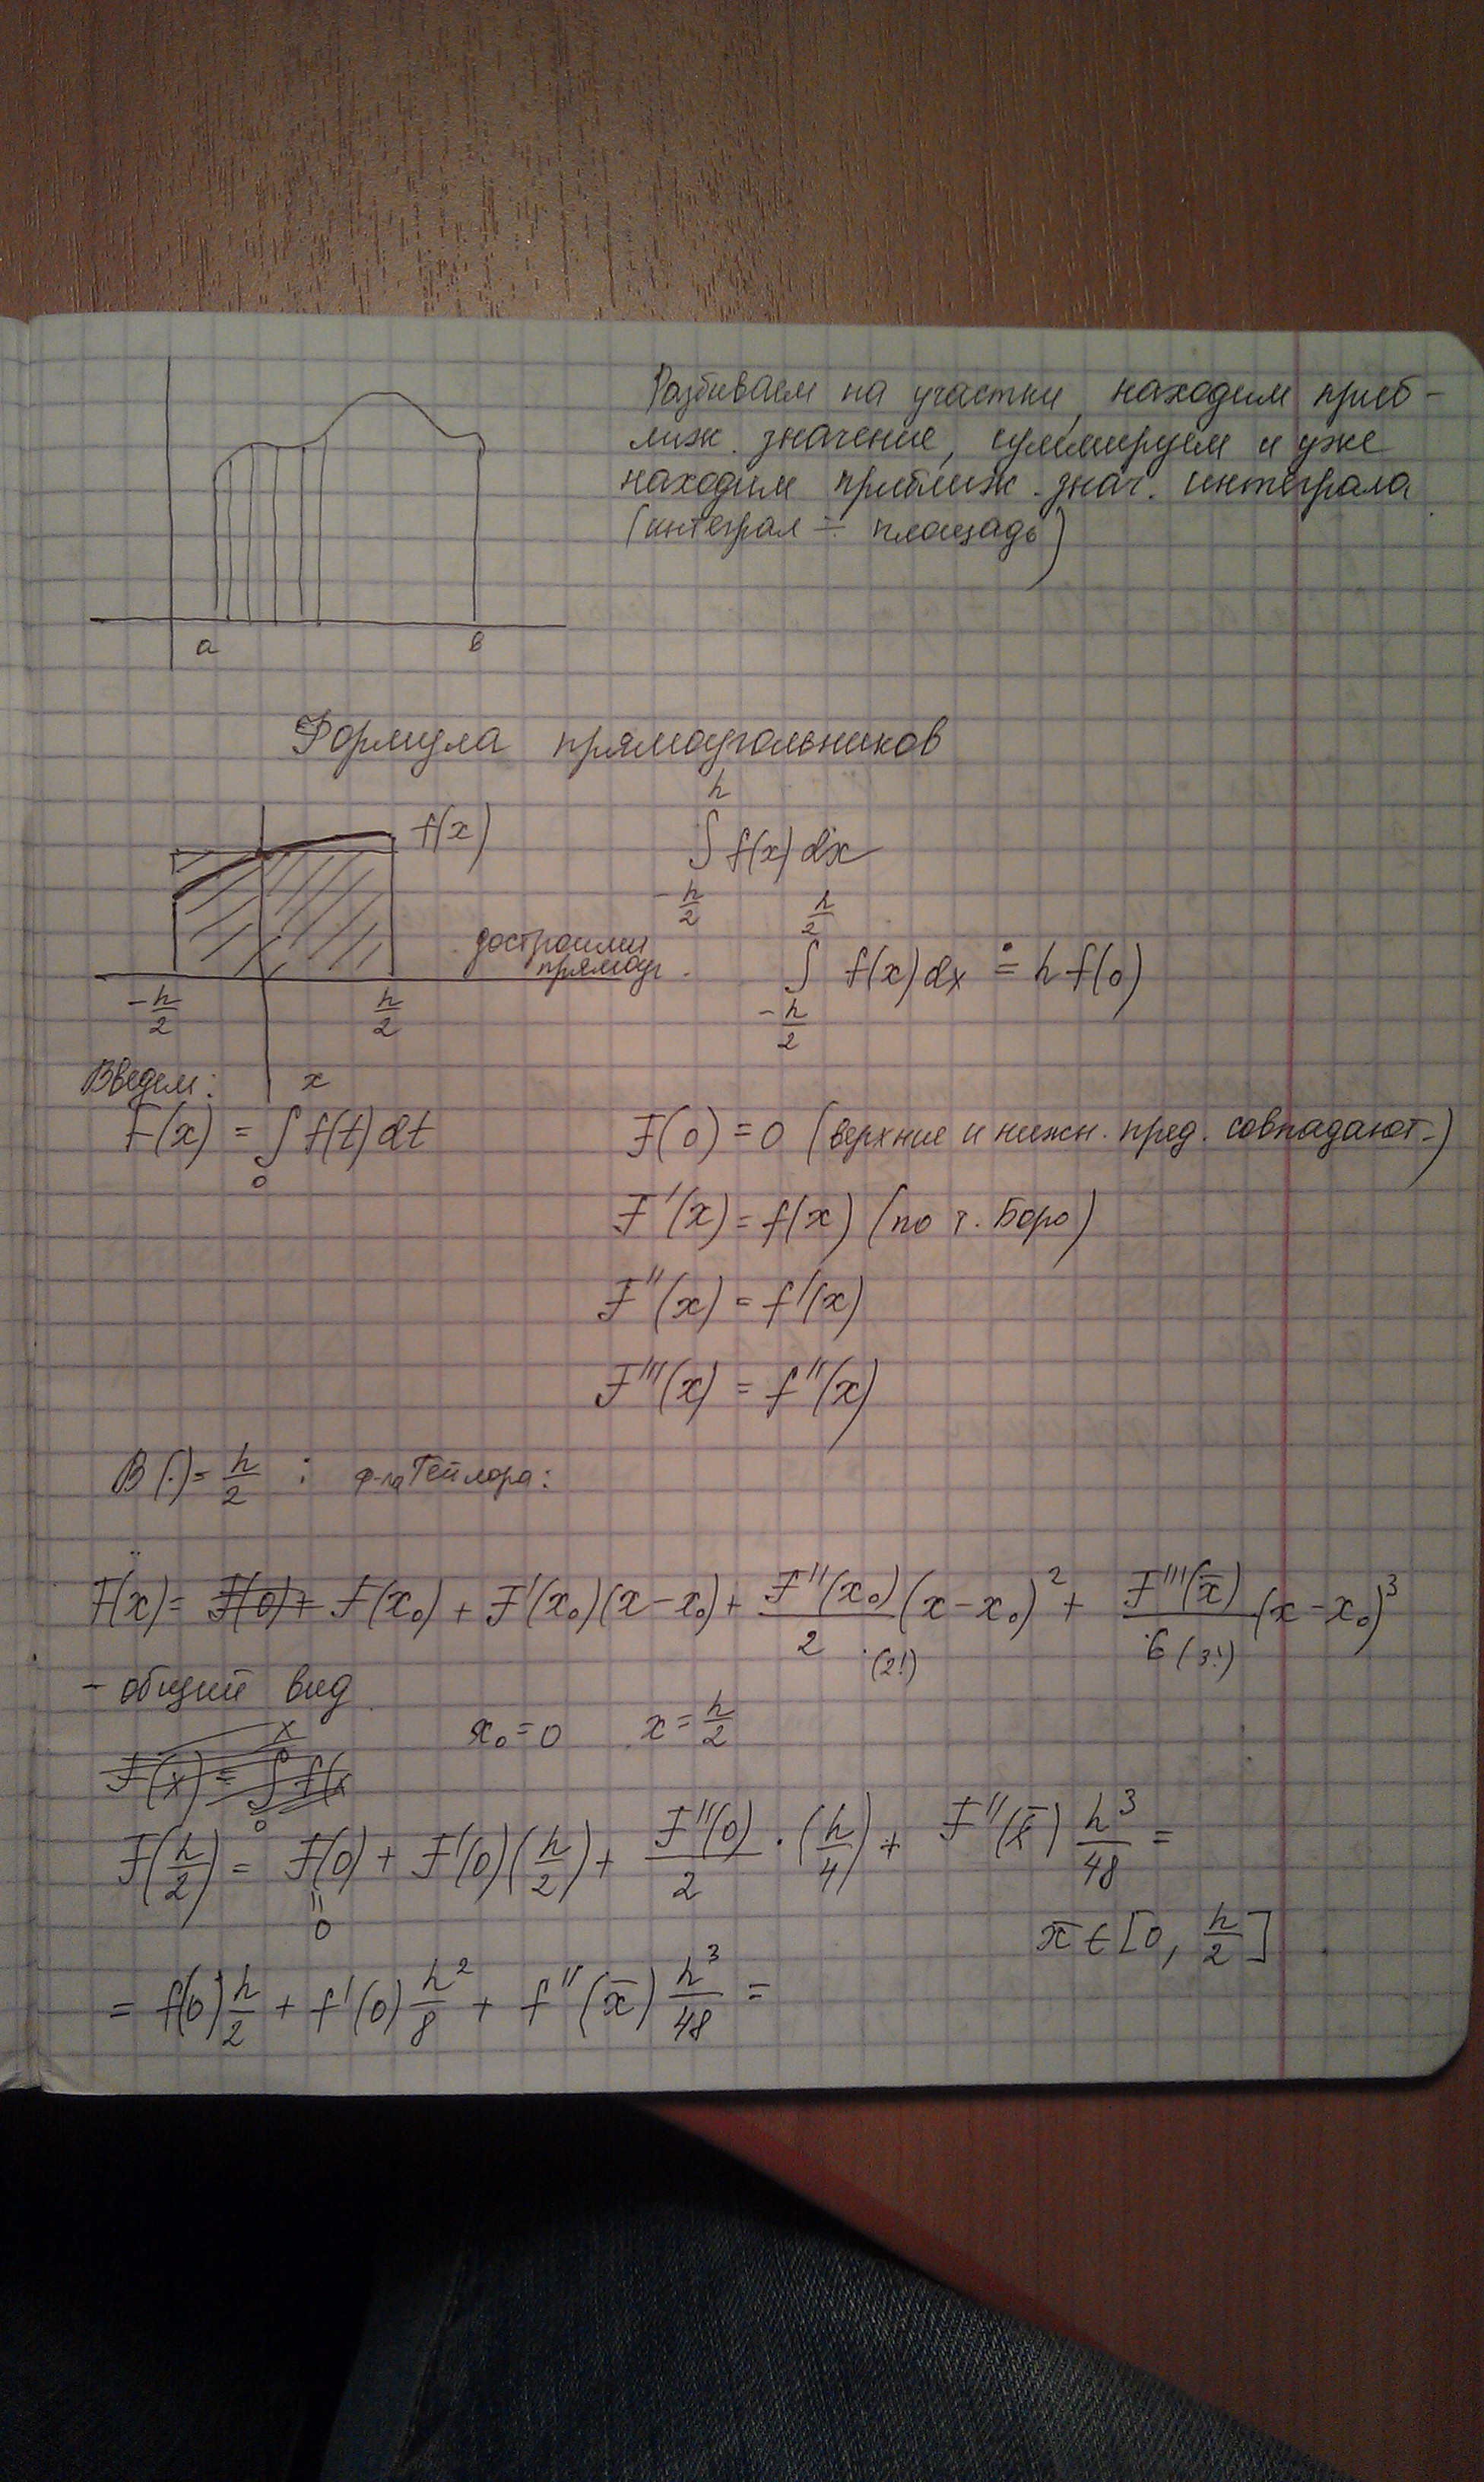 Разбиваем на участки, находим приб-
лиж. значение, суммируем и уже
находим приближ. знач. интеграла
(интеграл ∸ площадь)
a b
Формула прямоугольников
f(x)
∫_{-h/2}^{h} f(x) dx
достроили
прямоуг.
∫_{-h/2}^{h/2} f(x) dx ≐ h f(0)
-h/2 h/2
Введем:
F(x) = ∫_0^x f(t) dt F(0) = 0 (верхние и нижн. пред. совпадают)
F'(x) = f(x) (по т. Боро)
F''(x) = f'(x)
F'''(x) = f''(x)
В (·) = h/2 : ф-ла Тейлора:
F(x) = F(0) + F(x₀) + F'(x₀)(x - x₀) + F''(x₀)/2 (x - x₀)² + F'''(x̄)/6 (x - x₀)³
(2!) (3!)
- общий вид
x₀ = 0 x = h/2
F(x) = ∫_0^x f(x
F(h/2) = F(0) + F'(0)(h/2) + F''(0)/2 · (h/4) + F''(x̄) h³/48 =
"
0
x̄ ∈ [0, h/2]
= f(0) h/2 + f'(0) h²/8 + f''(x̄) h³/48 =